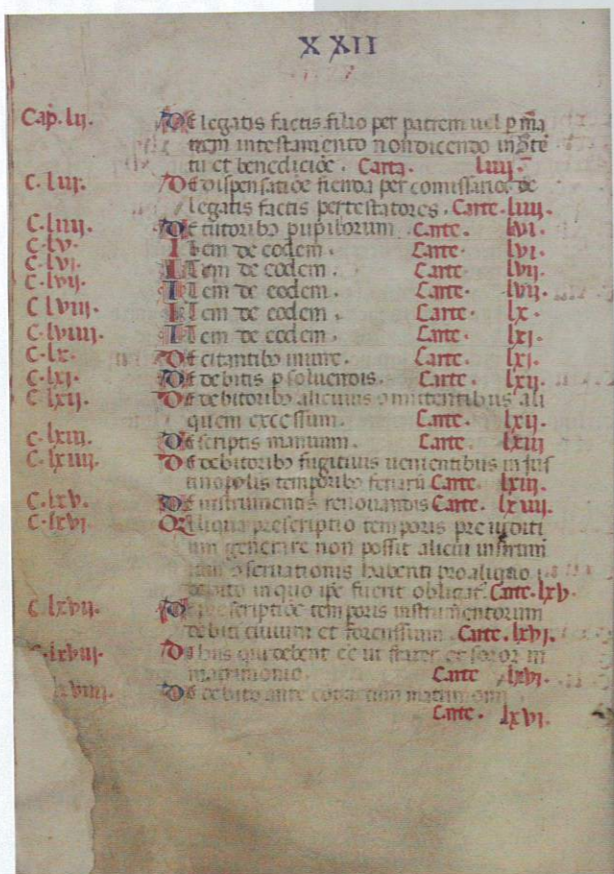 XXII
Cap. lij. De legatis factis filio per patrem uel p ma
trem in testamento non dicendo
et benedictiōe. Carta. liiij.
C. liij. De dispensatiōe fienda per comissarios de
legatis factis per testatores. Carte. liiij.
C. liiij. De tutoribꝰ pupillorum. Carte. lvi.
C. lv. Item de eodem. Carte. lvi.
C. lvi. Item de eodem. Carte. lvij.
C. lvij. Item de eodem. Carte. lvij.
C. lviij. Item de eodem. Carte. lx.
C. lviiij. Item de eodem. Carte. lxi.
C. lx. De citantibꝰ iniure. Carte. lxj.
C. lxi. De debitis psoluendis. Carte. lxij.
C. lxij. De debitoribꝰ alicuius omittentibus ali
quem excessum. Carte. lxij.
C. lxiij. De scriptis manuum. Carte. lxiij
C. lxiiij. De debitoribꝰ fugitiuis uenientibus in Jus
tinopolis temporibꝰ feriarū Carte. lxiij.
C. lxv. De instrumentis renouandis Carte. lxiiij.
C. lxvi. Q aliqua prescriptio temporis preiuditi
um generare non possit alicui instrum
obseruationis habenti pro aliquo
debito in quo ipe fuerit obligat. Carte. lxv.
C. lxvij. De prescriptiōe temporis instrumentorum
debiti ciuium et forensium. Carte. lxvi.
C. lxviij. De his qui debent ēe ut frater et soror in
matrimonio. Carte lxvj.
lxviiij. De debito ante contractum matrimonij
Carte. lxvj.